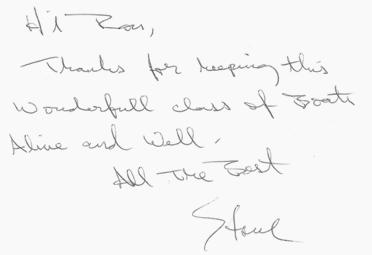 Hi Ross,
Thanks for keeping this
Wonderfull class of Boats
Alive and Well.
All The Best